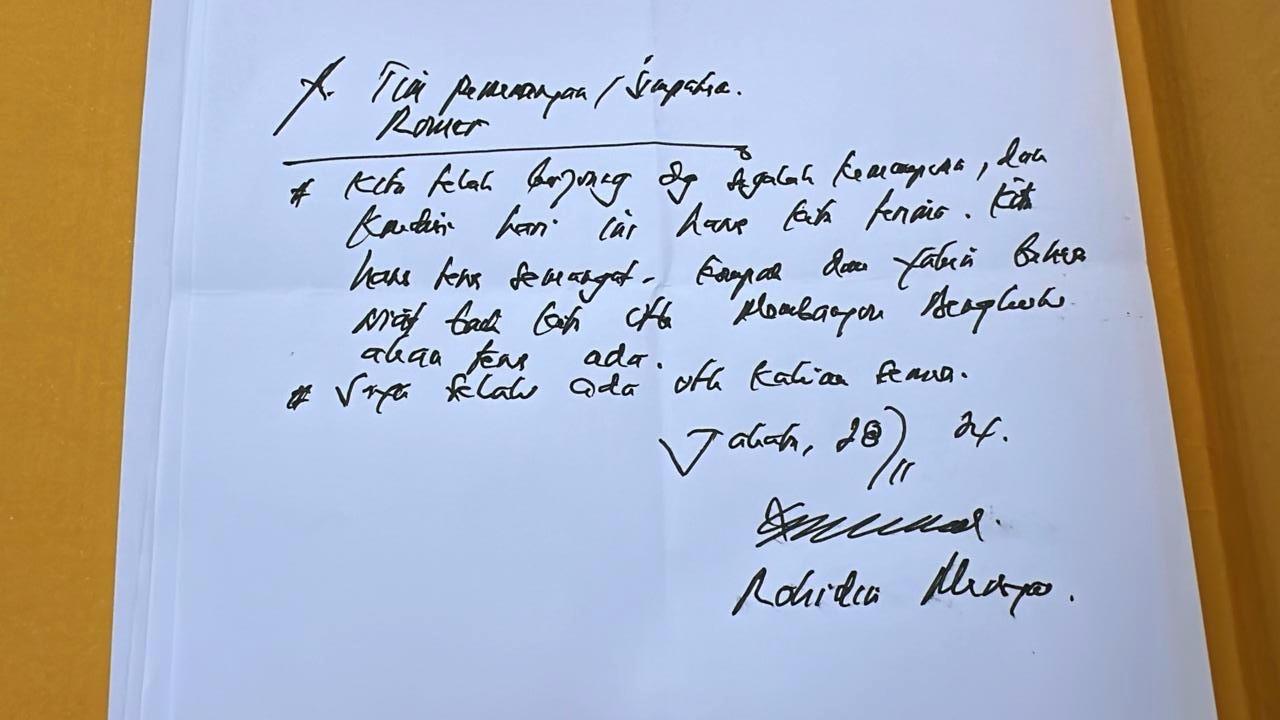 Tim Pemenangan / Simpatisan
Romer
# Kita telah berjuang dg segalah kemampuan, dan
kondisi hari ini harus kita terima. Kita
harus terus semangat - kompak dan yakin bahwa
niat baik kita utk Membangun Bengkulu
akan terus ada.
# Saya selalu ada utk kalian semua.
Jakarta, 28/11 24.
Rohidin Mersyah.